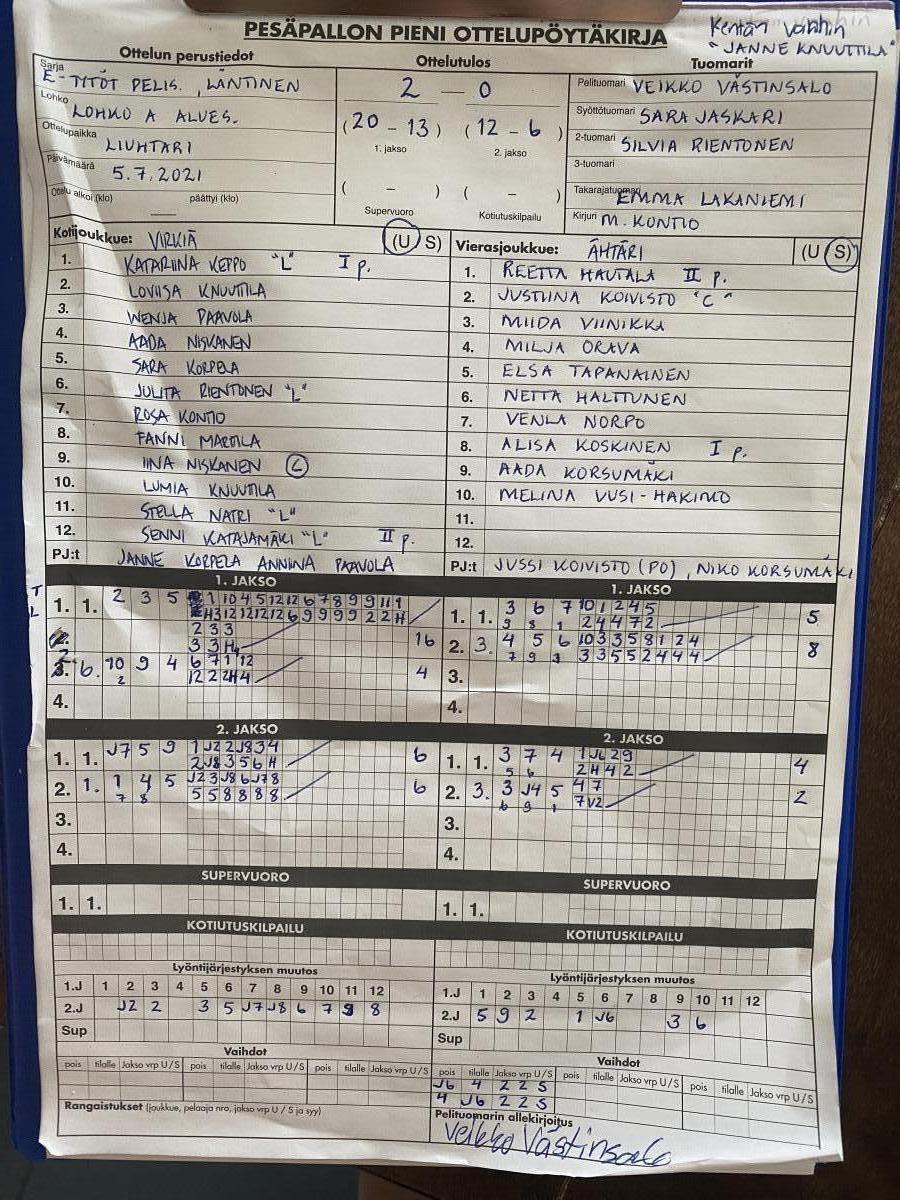 PESÄPALLON PIENI OTTELUPÖYTÄKIRJA
Kentän vanhin
"JANNE KNUUTTILA"
Ottelun perustiedot
Ottelutulos
Tuomarit
Sarja E-TYTÖT PELIS. , LÄNTINEN
Lohko LOHKO A ALVES.
Ottelupaikka LIUHTARI
Päivämäärä 5.7.2021
Ottelu alkoi (klo) päättyi (klo)
2 — 0
(20 - 13) (12 - 6)
1. jakso 2. jakso
( - ) ( - )
Supervuoro Kotiutuskilpailu
Pelituomari VEIKKO VÄSTINSALO
Syöttötuomari SARA JASKARI
2-tuomari SILVIA RIENTONEN
3-tuomari
Takarajatuomari EMMA LAKANIEMI
Kirjuri M. KONTIO
Kotijoukkue: VIRKIÄ (U / S)
1. KATARIINA KEPPO "L" I p.
2. LOVIISA KNUUTILA
3. WENJA PAAVOLA
4. AADA NISKANEN
5. SARA KORPELA
6. JULITA RIENTONEN "L"
7. ROSA KONTIO
8. FANNI MARTILA
9. IINA NISKANEN C
10. LUMIA KNUUTILA
11. STELLA NATRI "L"
12. SENNI KATAJAMÄKI "L" II p.
PJ:t JANNE KORPELA ANNIINA PAAVOLA
Vierasjoukkue: ÄHTÄRI (U / S)
1. REETTA HAUTALA II p.
2. JUSTIINA KOIVISTO "C"
3. MIIDA VIINIKKA
4. MILJA ORAVA
5. ELSA TAPANAINEN
6. NETTA HALTTUNEN
7. VENLA NORPO
8. ALISA KOSKINEN I p.
9. AADA KORSUMÄKI
10. MELINA UUSI-HAKIMO
11.
12.
PJ:t JUSSI KOIVISTO (PO), NIKO KORSUMÄKI
1. JAKSO
T
L
1. 1. 2 3 5 1 10 4 5 12 12 6 7 8 9 9 11 1
H 3 12 12 12 12 6 9 9 9 9 2 2 H
2 3 3
3 3 H 16
6. 10 9 4 6 7 1 12
2 12 2 2 H 4 4
4.
1. JAKSO
1. 1. 3 6 7 10 1 2 4 5 5
9 8 1 2 4 4 7 2
2. 3. 4 5 6 10 3 3 5 8 1 2 4 8
7 9 1 3 3 5 5 2 4 4 4
3.
4.
2. JAKSO
1. 1. J7 5 9 1 J2 2 J8 3 4 6
2 J8 3 5 6 H
2. 1. 1 4 5 J2 3 J8 6 J7 8 6
7 8 5 5 8 8 8 8
3.
4.
2. JAKSO
1. 1. 3 7 4 1 J6 2 9 4
5 6 2 H 4 2
2. 3. 3 J4 5 4 7 2
6 9 1 7 V2
3.
4.
SUPERVUORO
1. 1.
SUPERVUORO
1. 1.
KOTIUTUSKILPAILU
KOTIUTUSKILPAILU
Lyöntijärjestyksen muutos
1.J 1 2 3 4 5 6 7 8 9 10 11 12
2.J J2 2 3 5 J7 J8 6 7 9 8
Sup
Lyöntijärjestyksen muutos
1.J 1 2 3 4 5 6 7 8 9 10 11 12
2.J 5 9 2 1 J6 3 6
Sup
Vaihdot
pois tilalle Jakso vrp U / S pois tilalle Jakso vrp U / S pois tilalle Jakso vrp U / S
Vaihdot
pois tilalle Jakso vrp U / S pois tilalle Jakso vrp U / S pois tilalle Jakso vrp U / S
J6 4 2 2 S
4 J6 2 2 S
Rangaistukset (joukkue, pelaaja nro, jakso vrp U / S ja syy)
Pelituomarin allekirjoitus
Veikko Västinsalo